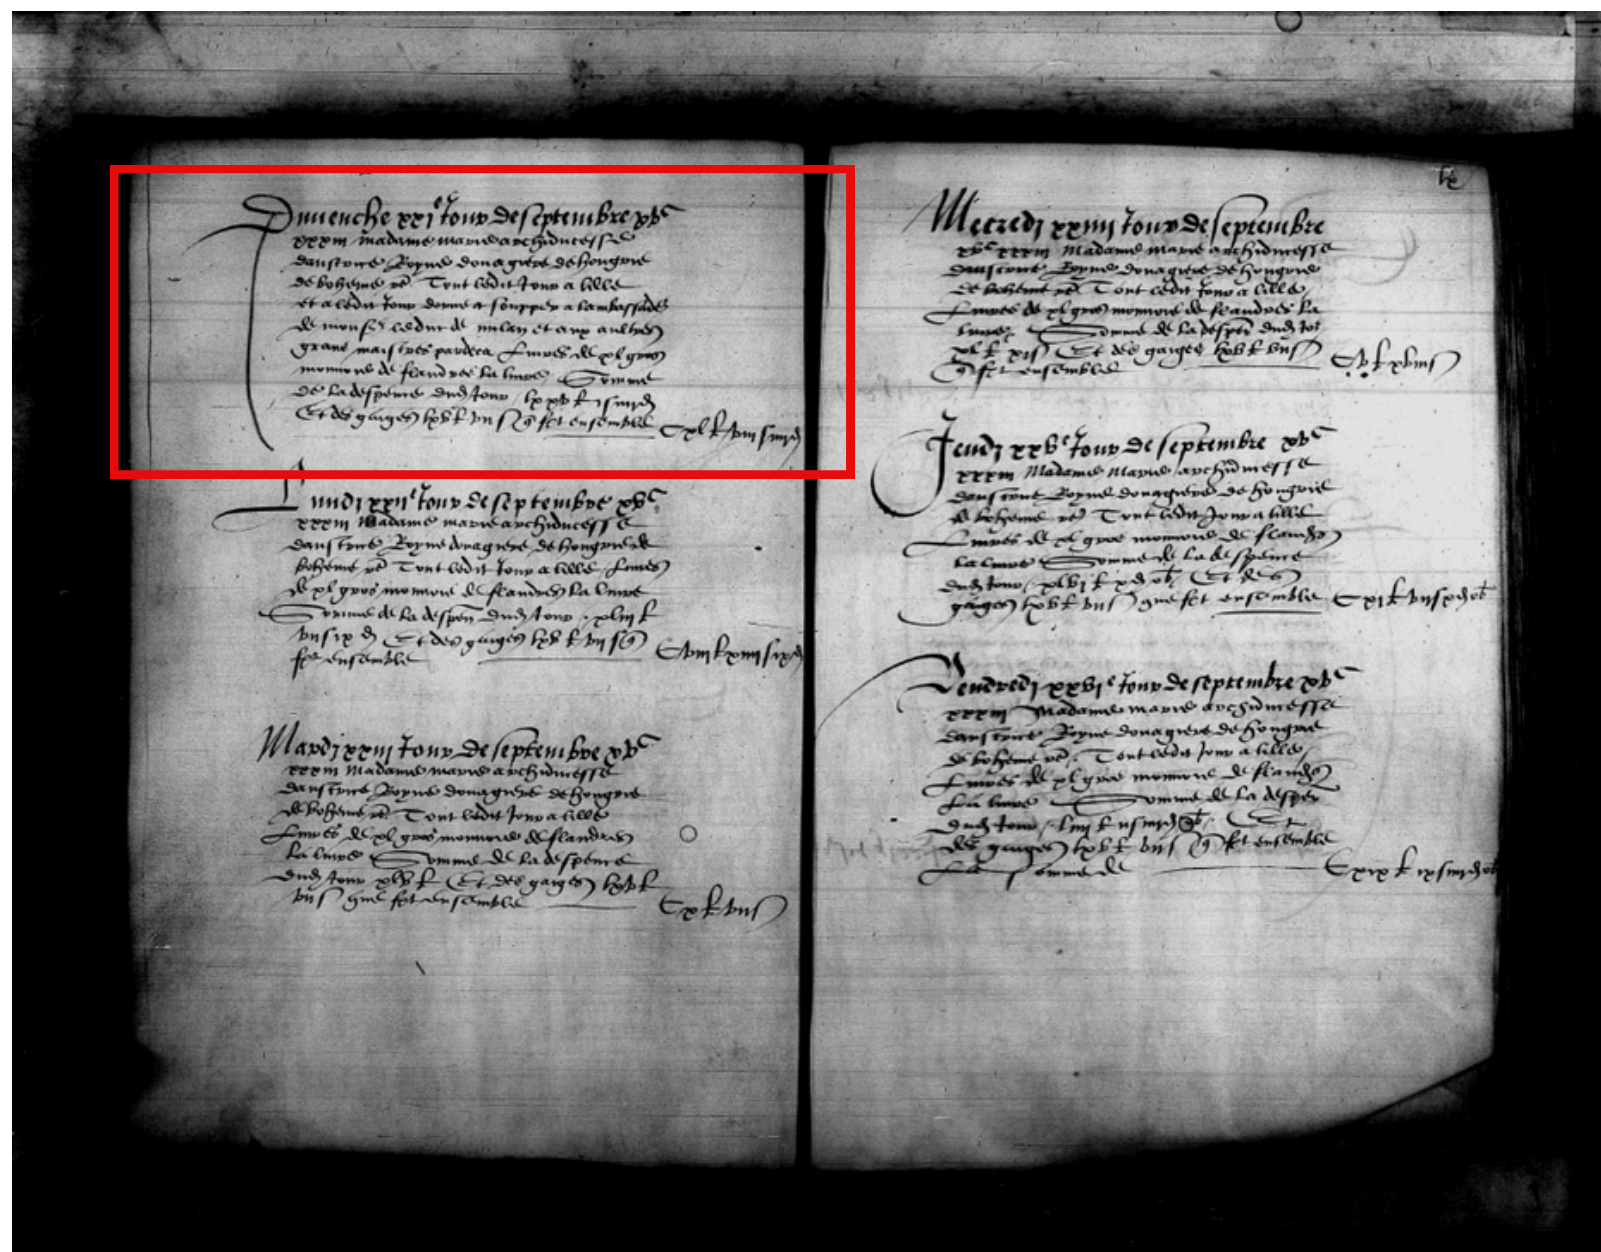 Dimenche xxi^e Jour de septembre xv^c
xxxiii madame marie archiducesse
daustrice Royne douagiere de hongrie
de boheme etc Tout ledit Jour a lille
et a ledit Jour donne a soupper a lambassade
de mons^r le duc de millan et aux aultres
grans maistres pardeca Livres de xl gros
monnoie de flandres la livre Somme
de la despence dud Jour lxxv £ i s iiii d
Et des gaiges lxv £ vii s q fct ensemble Cxl £ viii s iiii d
Lundi xxii^e Jour de septembre xv^c
xxxiii Madame marie archiducesse
daustrice Royne douagiere de hongrie de
boheme etc Tout ledit Jour a lille Livres
de xl gros monnoie de flandres la livre
Somme de la despen dud Jour xliii £
vii s ix d Et des gaiges lxv £ vii s q
fct ensemble Cviii £ xiiii s ix d
Mardi xxiii Jour de septembre xv^c
xxxiii Madame marie archiducesse
daustrice Royne douagiere de hongrie
de boheme etc Tout ledit Jour a lille
Livres de xl gros monnoie de flandres
la livre Somme de la despence
dud Jour xlv £ Et des gaiges lxv £
vii s que fct ensemble Cx £ vii s
lx
Mecredi xxiiii Jour de septembre
xv^c xxxiii Madame marie archiducesse
daustrice Royne douagiere de hongrie
de boheme etc Tout ledit Jour a lille
Livres de xl gros monnoie de flandres la
livre Somme de la despen dud Jor
xl £ xi s Et des gaiges lxv £ vii s
q fct ensemble Cv £ xviii s
Jeudi xxv^e Jour de septembre xv^c
xxxiii Madame Marie archiducesse
daustrice Royne douagiere de hongrie
de boheme etc Tout ledit Jour a lille
Livres de xl gros monnoie de flandres
la livre Somme de la despence
dud Jour xlvi £ x d ob Et des
gaiges lxv £ vii s que fct ensemble Cxi £ vii s x d ob
Vendredi xxvi^e Jour de septembre xv^c
xxxiii Madame marie archiducesse
daustrice Royne douagiere de hongrie
de boheme etc Tout ledit Jour a lille
Livres de xl gros monnoie de flandres
la livre Somme de la despen
dud Jour liiii £ ii s iiii d ob Et
des gaiges lxv £ vii s q fct ensemble
La somme de Cxix £ ix s iiii d ob